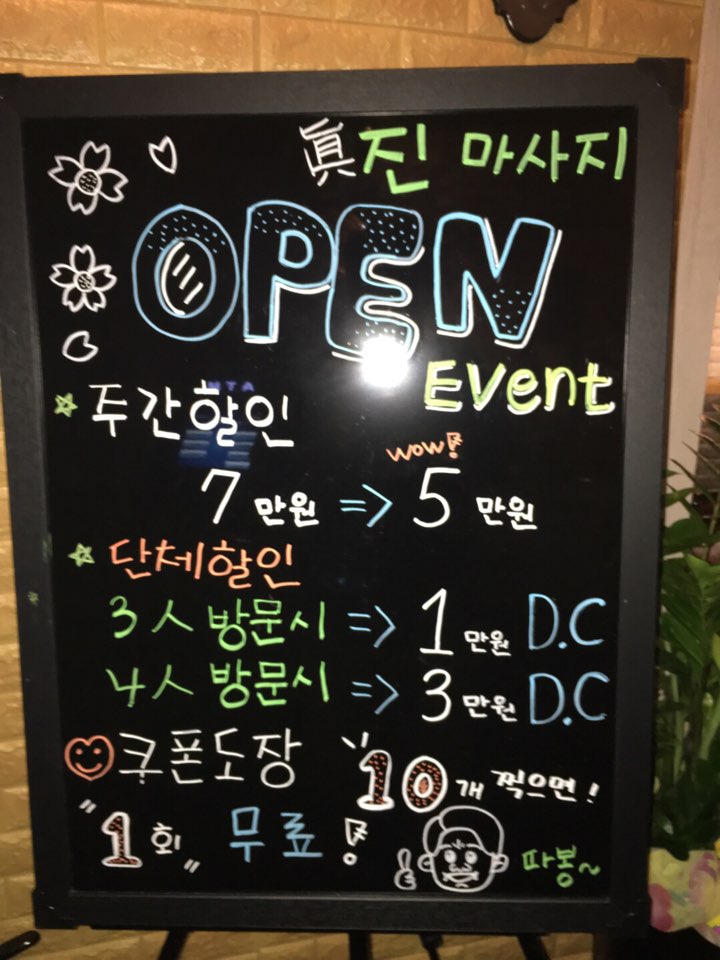 眞진 마사지
OPEN
EVent
주간할인
wow!
7만원 => 5만원
단체할인
3人 방문시 => 1만원 D.C
4人 방문시 => 3만원 D.C
쿠폰도장 10개 찍으면!
"1회" 무료!
따봉~